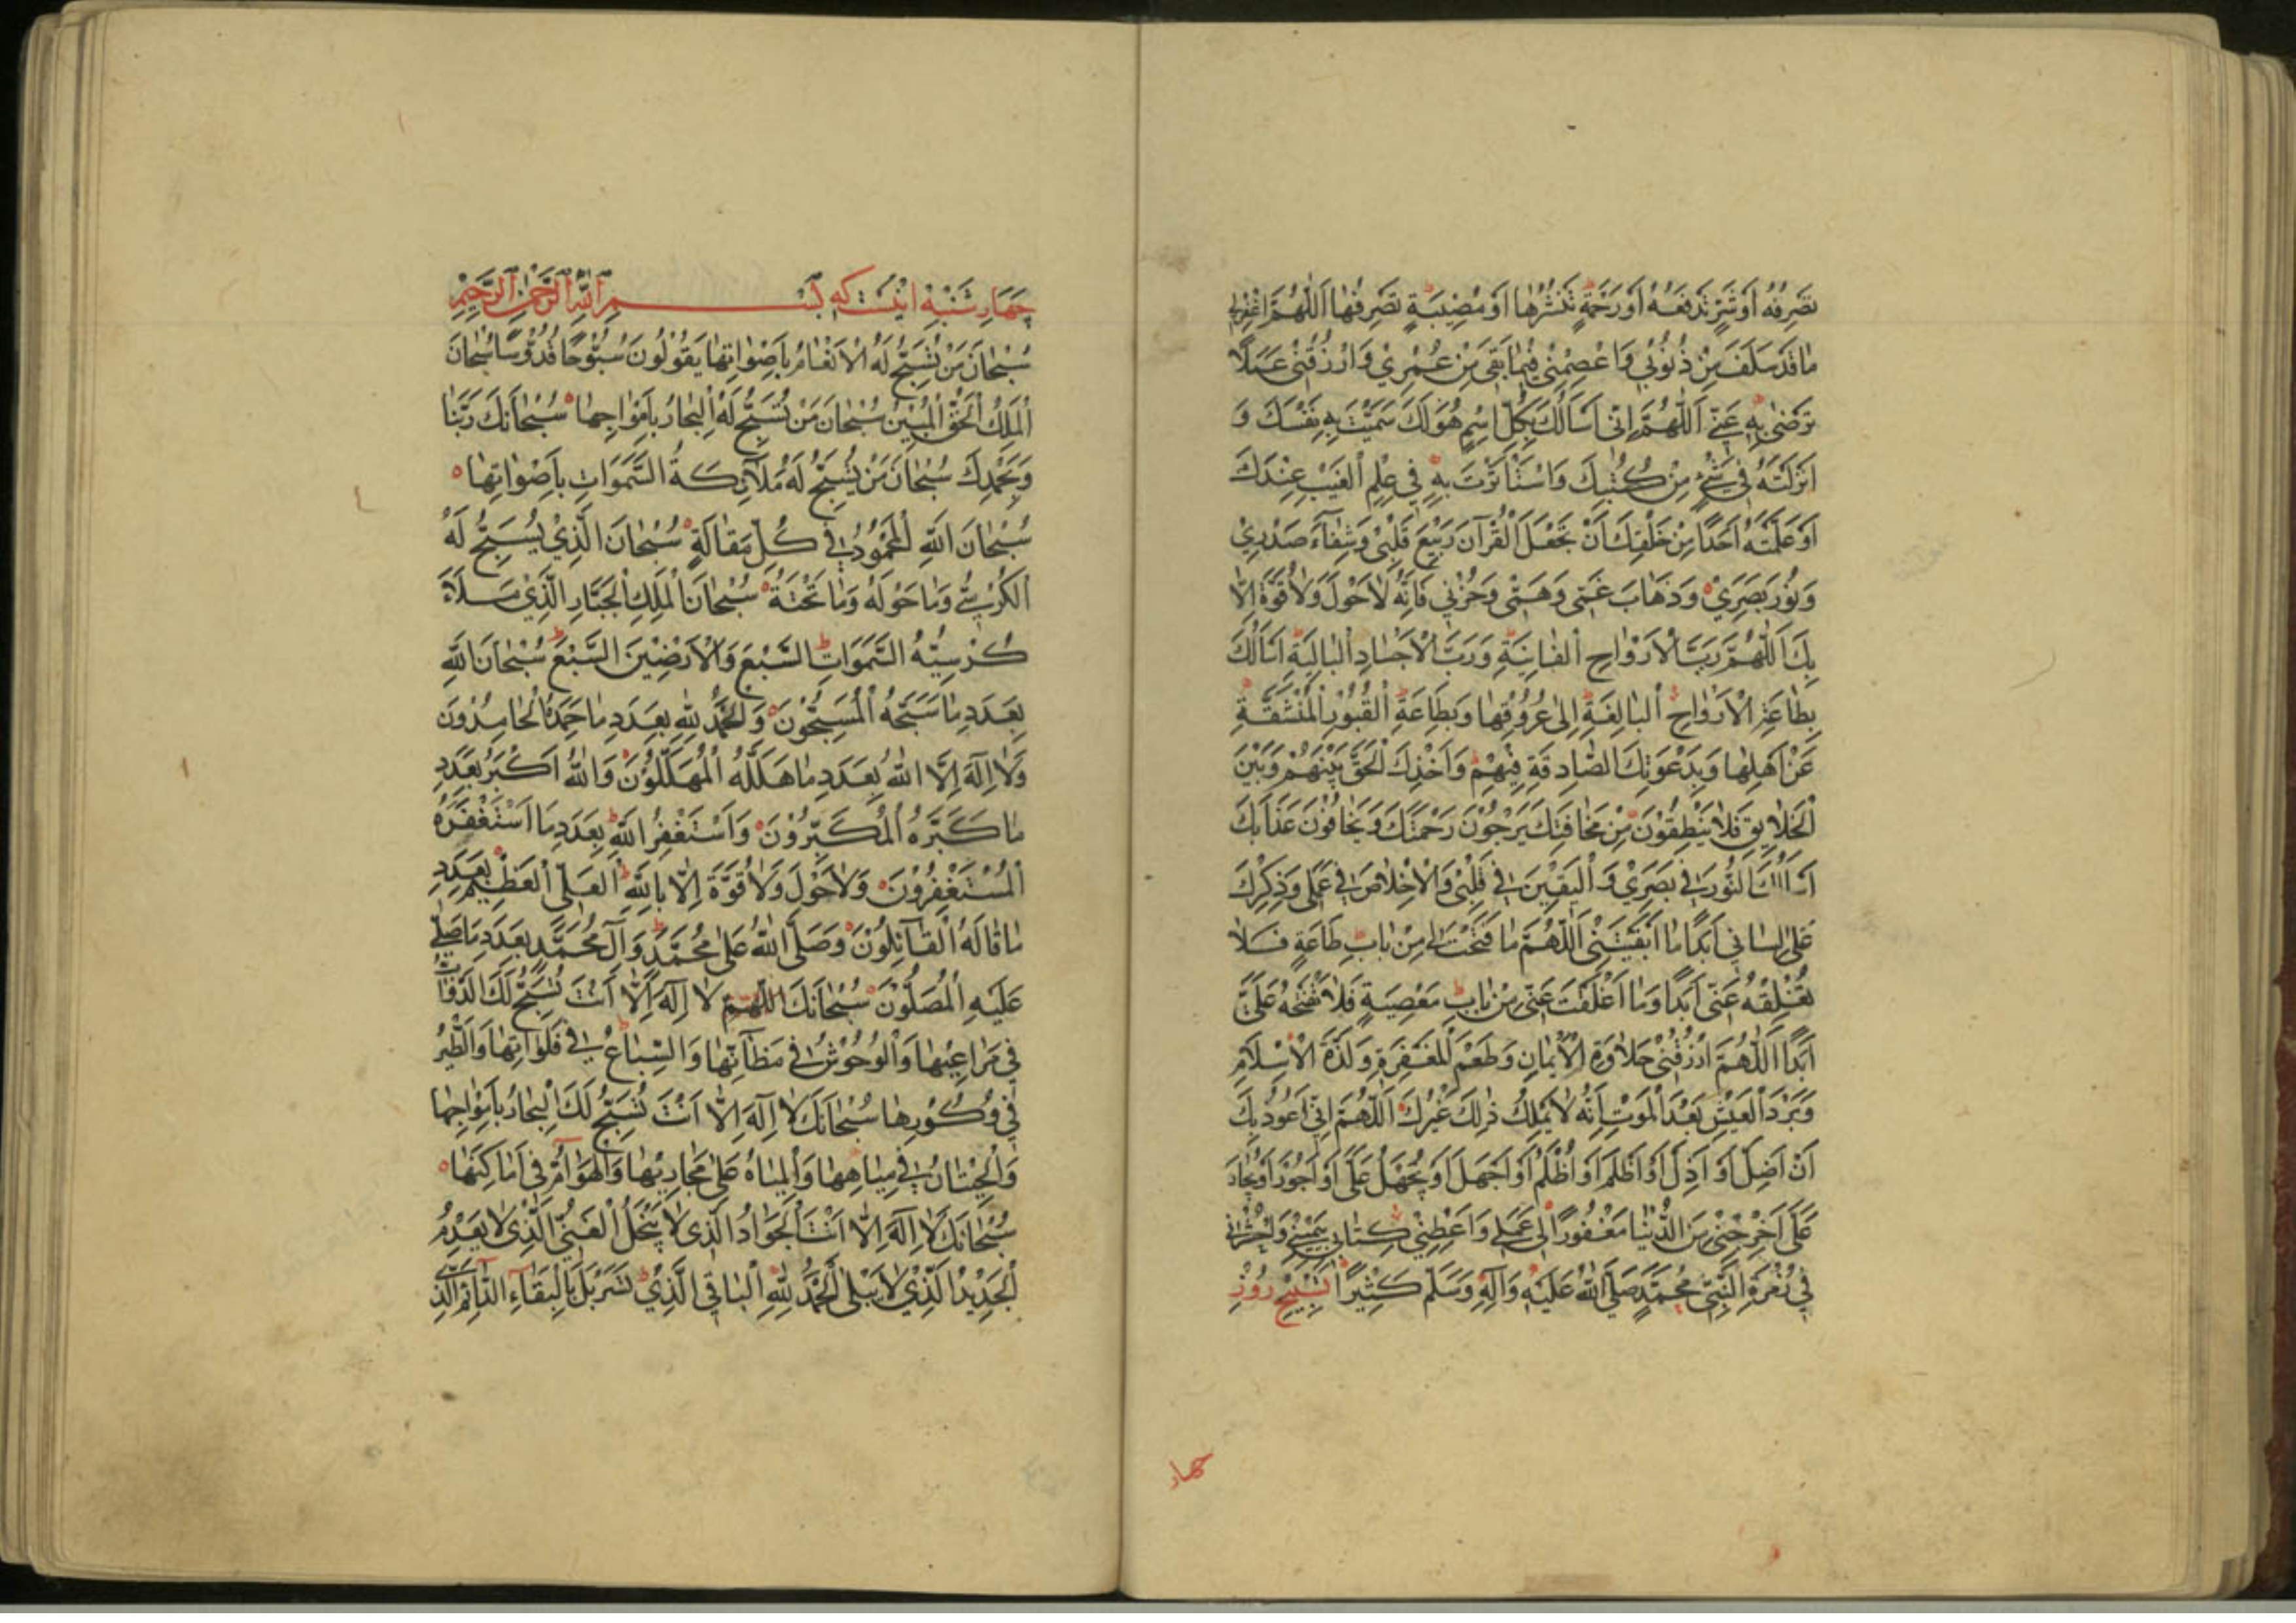 تَصْرِفُهُ اَوْ شَرٍّ تَدْفَعُهُ اَوْ رَحْمَةٍ تَنْشُرُهَا اَوْ مُصِيبَةٍ تَصْرِفُهَا اَللّٰهُمَّ اغْفِرْلِي
مَا قَدْ سَلَفَ مِنْ ذُنُوبِي وَاعْصِمْنِي فِيمَا بَقِيَ مِنْ عُمْرِي وَارْزُقْنِي عَمَلًا
تَرْضٰى بِهِ عَنِّي اَللّٰهُمَّ اِنِّي اَسْاَلُكَ بِكُلِّ اسْمٍ هُوَ لَكَ سَمَّيْتَ بِهِ نَفْسَكَ وَ
اَنْزَلْتَهُ فِي شَيْءٍ مِنْ كُتُبِكَ وَاسْتَأْثَرْتَ بِهِ فِي عِلْمِ الْغَيْبِ عِنْدَكَ
اَوْ عَلَّمْتَهُ اَحَدًا مِنْ خَلْقِكَ اَنْ تَجْعَلَ الْقُرْآنَ رَبِيعَ قَلْبِي وَشِفَآءَ صَدْرِي
وَنُورَ بَصَرِي وَذَهَابَ غَمِّي وَهَمِّي وَحُزْنِي فَاِنَّهُ لَا حَوْلَ وَلَا قُوَّةَ اِلَّا
بِكَ اَللّٰهُمَّ رَبَّ الْاَرْوَاحِ الْفَانِيَةِ وَرَبَّ الْاَجْسَادِ الْبَالِيَةِ اَسْاَلُكَ
بِطَاعَةِ الْاَرْوَاحِ الْبَالِغَةِ اِلٰى عُرُوقِهَا وَبِطَاعَةِ الْقُبُورِ الْمُنْشَقَّةِ
عَنْ اَهْلِهَا وَبِدَعْوَتِكَ الصَّادِقَةِ فِيهِمْ وَاَخْذِكَ الْحَقَّ بَيْنَهُمْ وَبَيْنَ
الْخَلَايِقِ فَلَا يَنْطِقُونَ مِنْ مَخَافَتِكَ يَرْجُونَ رَحْمَتَكَ وَيَخَافُونَ عَذَابَكَ
اَسْاَلُكَ النُّورَ فِي بَصَرِي وَالْيَقِينَ فِي قَلْبِي وَالْاِخْلَاصَ فِي عَمَلِي وَذِكْرَكَ
عَلٰى لِسَانِي اَبَدًا مَا اَبْقَيْتَنِي اَللّٰهُمَّ مَا فَتَحْتَ لِي مِنْ بَابِ طَاعَةٍ فَلَا
تُغْلِقْهُ عَنِّي اَبَدًا وَمَا اَغْلَقْتَ عَنِّي مِنْ بَابِ مَعْصِيَةٍ فَلَا تَفْتَحْهُ عَلَيَّ
اَبَدًا اَللّٰهُمَّ ارْزُقْنِي حَلَاوَةَ الْاِيمَانِ وَطَعْمَ الْمَغْفِرَةِ وَلَذَّةَ الْاِسْلَامِ
وَبَرْدَ الْعَيْشِ بَعْدَ الْمَوْتِ اِنَّهُ لَا يَمْلِكُ ذٰلِكَ غَيْرُكَ اَللّٰهُمَّ اِنِّي اَعُوذُ بِكَ
اَنْ اَضِلَّ اَوْ اَذِلَّ اَوْ اَظْلِمَ اَوْ اُظْلَمَ اَوْ اَجْهَلَ اَوْ يُجْهَلَ عَلَيَّ اَوْ اَجُورَ اَوْ يُجَارَ
عَلَيَّ اَخْرِجْنِي مِنَ الدُّنْيَا مَغْفُورًا لِي عَمَلِي وَاَعْطِنِي كِتَابِي بِيَمِينِي وَاحْشُرْنِي
فِي زُمْرَةِ النَّبِيِّ مُحَمَّدٍ صَلَّى اللّٰهُ عَلَيْهِ وَآلِهِ وَسَلَّمَ كَثِيرًا تَسْبِيحِ رُوزِ
چهار
چَهَارشَنْبِهْ اينَست كه بِسْمِ اللّٰهِ الرَّحْمٰنِ الرَّحِيمِ
سُبْحَانَ مَنْ تُسَبِّحُ لَهُ الْاَنْعَامُ بِاَصْوَاتِهَا يَقُولُونَ سُبُّوحًا قُدُّوسًا سُبْحَانَ
الْمَلِكِ الْحَقِّ الْمُبِينِ سُبْحَانَ مَنْ تُسَبِّحُ لَهُ الْبِحَارُ بِاَمْوَاجِهَا سُبْحَانَكَ رَبَّنَا
وَبِحَمْدِكَ سُبْحَانَ مَنْ يُسَبِّحُ لَهُ مَلَآئِكَةُ السَّمَوَاتِ بِاَصْوَاتِهَا
سُبْحَانَ اللّٰهِ الْمَحْمُودِ فِي كُلِّ مَقَالَةٍ سُبْحَانَ الَّذِي يُسَبِّحُ لَهُ
الْكُرْسِيُّ وَمَا حَوْلَهُ وَمَا تَحْتَهُ سُبْحَانَ الْمَلِكِ الْجَبَّارِ الَّذِي مَلَأَ
كُرْسِيُّهُ السَّمَوَاتِ السَّبْعَ وَالْاَرَضِينَ السَّبْعَ سُبْحَانَ اللّٰهِ
بِعَدَدِ مَا سَبَّحَهُ الْمُسَبِّحُونَ وَالْحَمْدُ لِلّٰهِ بِعَدَدِ مَا حَمِدَهُ الْحَامِدُونَ
وَلَا اِلٰهَ اِلَّا اللّٰهُ بِعَدَدِ مَا هَلَّلَهُ الْمُهَلِّلُونَ وَاللّٰهُ اَكْبَرُ بِعَدَدِ
مَا كَبَّرَهُ الْمُكَبِّرُونَ وَاَسْتَغْفِرُ اللّٰهَ بِعَدَدِ مَا اسْتَغْفَرَهُ
الْمُسْتَغْفِرُونَ وَلَا حَوْلَ وَلَا قُوَّةَ اِلَّا بِاللّٰهِ الْعَلِيِّ الْعَظِيمِ بِعَدَدِ
مَا قَالَهُ الْقَآئِلُونَ وَصَلَّى اللّٰهُ عَلٰى مُحَمَّدٍ وَآلِ مُحَمَّدٍ بِعَدَدِ مَا صَلّٰى
عَلَيْهِ الْمُصَلُّونَ سُبْحَانَكَ اللّٰهُمَّ لَا اِلٰهَ اِلَّا اَنْتَ تُسَبِّحُ لَكَ الدَّوَآبُّ
فِي مَرَاعِيهَا وَالْوُحُوشُ فِي مَظَآنِّهَا وَالسِّبَاعُ فِي فَلَوَاتِهَا وَالطَّيْرُ
فِي وُكُورِهَا سُبْحَانَكَ لَا اِلٰهَ اِلَّا اَنْتَ تُسَبِّحُ لَكَ الْبِحَارُ بِاَمْوَاجِهَا
وَالْحِيتَانُ فِي مِيَاهِهَا وَالْمِيَاهُ عَلٰى مَجَارِيهَا وَالْهَوَآمُّ فِي اَمَاكِنِهَا
سُبْحَانَكَ لَا اِلٰهَ اِلَّا اَنْتَ الْجَوَادُ الَّذِي لَا يَبْخَلُ الْغَنِيُّ الَّذِي لَا يَعْدِمُ
الْجَدِيدُ الَّذِي لَا يَبْلٰى الْحَمْدُ لِلّٰهِ الْبَاقِي الَّذِي تَسَرْبَلَ بِالْبَقَآءِ الدَّآئِمِ الَّذِي